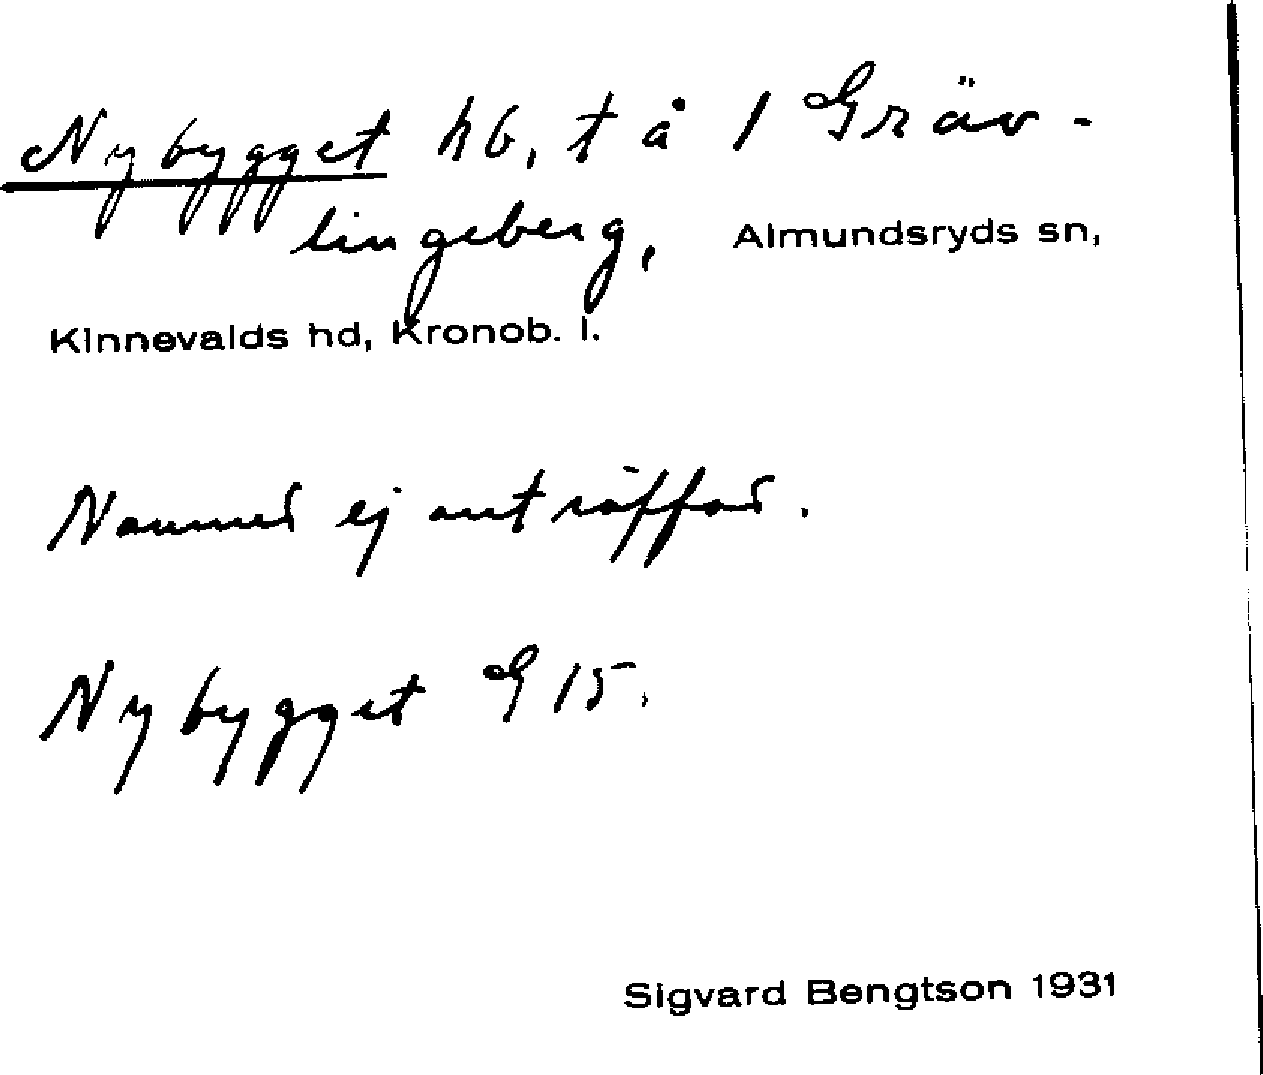 Nybygget hb, t å 1 Gräv-
lingeberg, Almundsryds sn,
Kinnevalds hd, Kronob. l.
Namnet ej anträffat.
Nybygget G 15.
Sigvard Bengtson 1931